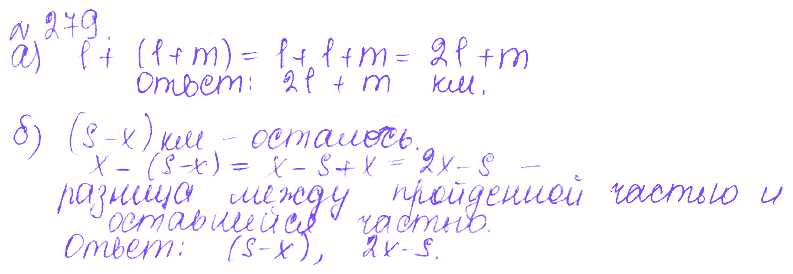 № 279.
а) l + (l+m) = l+l+m = 2l+m
Ответ: 2l + m км.
б) (S-x) км - осталось.
x - (S-x) = x - S + x = 2x - S -
разница между пройденной частью и
оставшейся частью.
Ответ: (S-x), 2x-S.